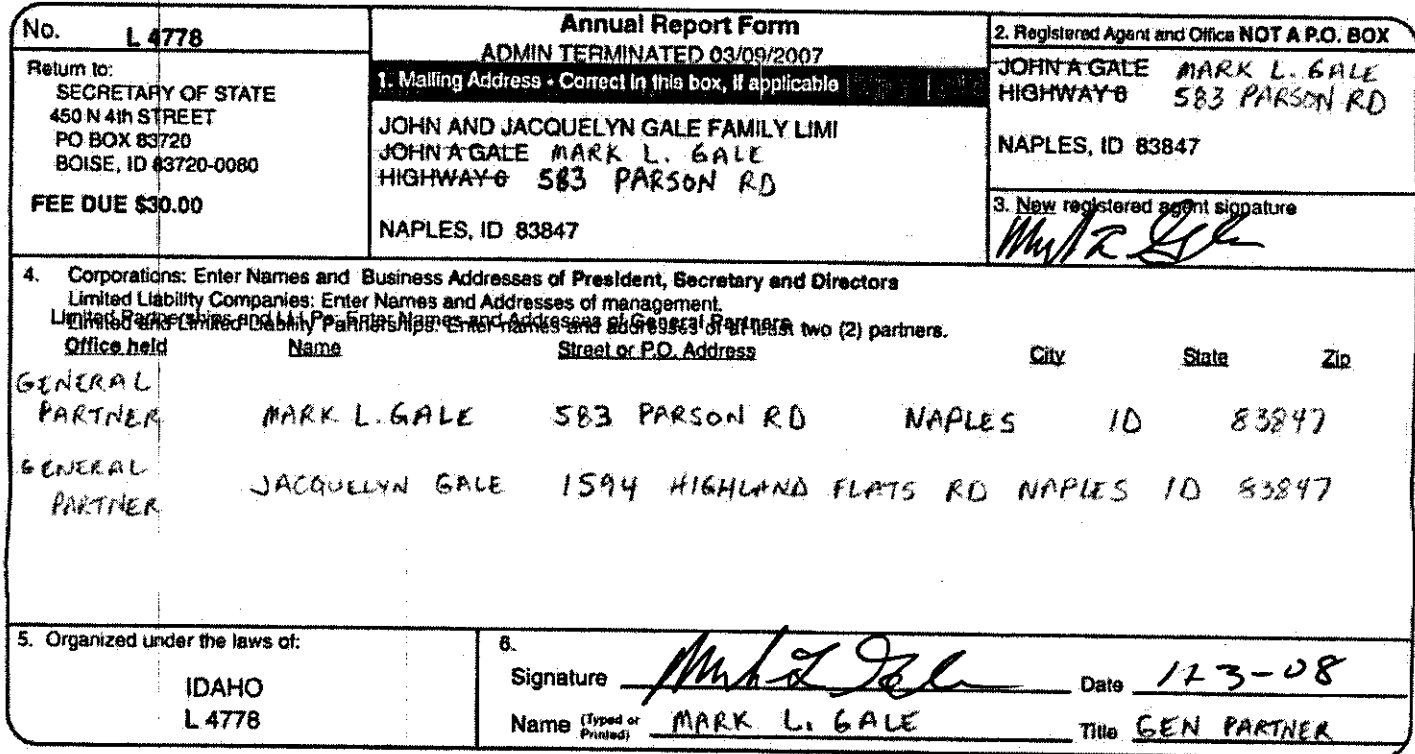 No. L 4778
Return to:
SECRETARY OF STATE
450 N 4th STREET
PO BOX 83720
BOISE, ID 83720-0080
FEE DUE $30.00
Annual Report Form
ADMIN TERMINATED 03/09/2007
1. Mailing Address - Correct in this box, if applicable
JOHN AND JACQUELYN GALE FAMILY LIMI
JOHN A GALE MARK L. GALE
HIGHWAY 6 583 PARSON RD
NAPLES, ID 83847
2. Registered Agent and Office NOT A P.O. BOX
JOHN A GALE MARK L. GALE
HIGHWAY 6 583 PARSON RD
NAPLES, ID 83847
3. New registered agent signature
4. Corporations: Enter Names and Business Addresses of President, Secretary and Directors
Limited Liability Companies: Enter Names and Addresses of management.
Limited Partnerships and Enter Names and Addresses of General Partners
Limited and Limited Liability Partnerships: Enter names and addresses of at least two (2) partners.
Office held Name Street or P.O. Address City State Zip
GENERAL
PARTNER MARK L. GALE 583 PARSON RD NAPLES ID 83847
GENERAL
PARTNER JACQUELYN GALE 1594 HIGHLAND FLATS RD NAPLES ID 83847
5. Organized under the laws of:
IDAHO
L 4778
6.
Signature Date
Name (Typed or Printed) MARK L. GALE Title GEN PARTNER